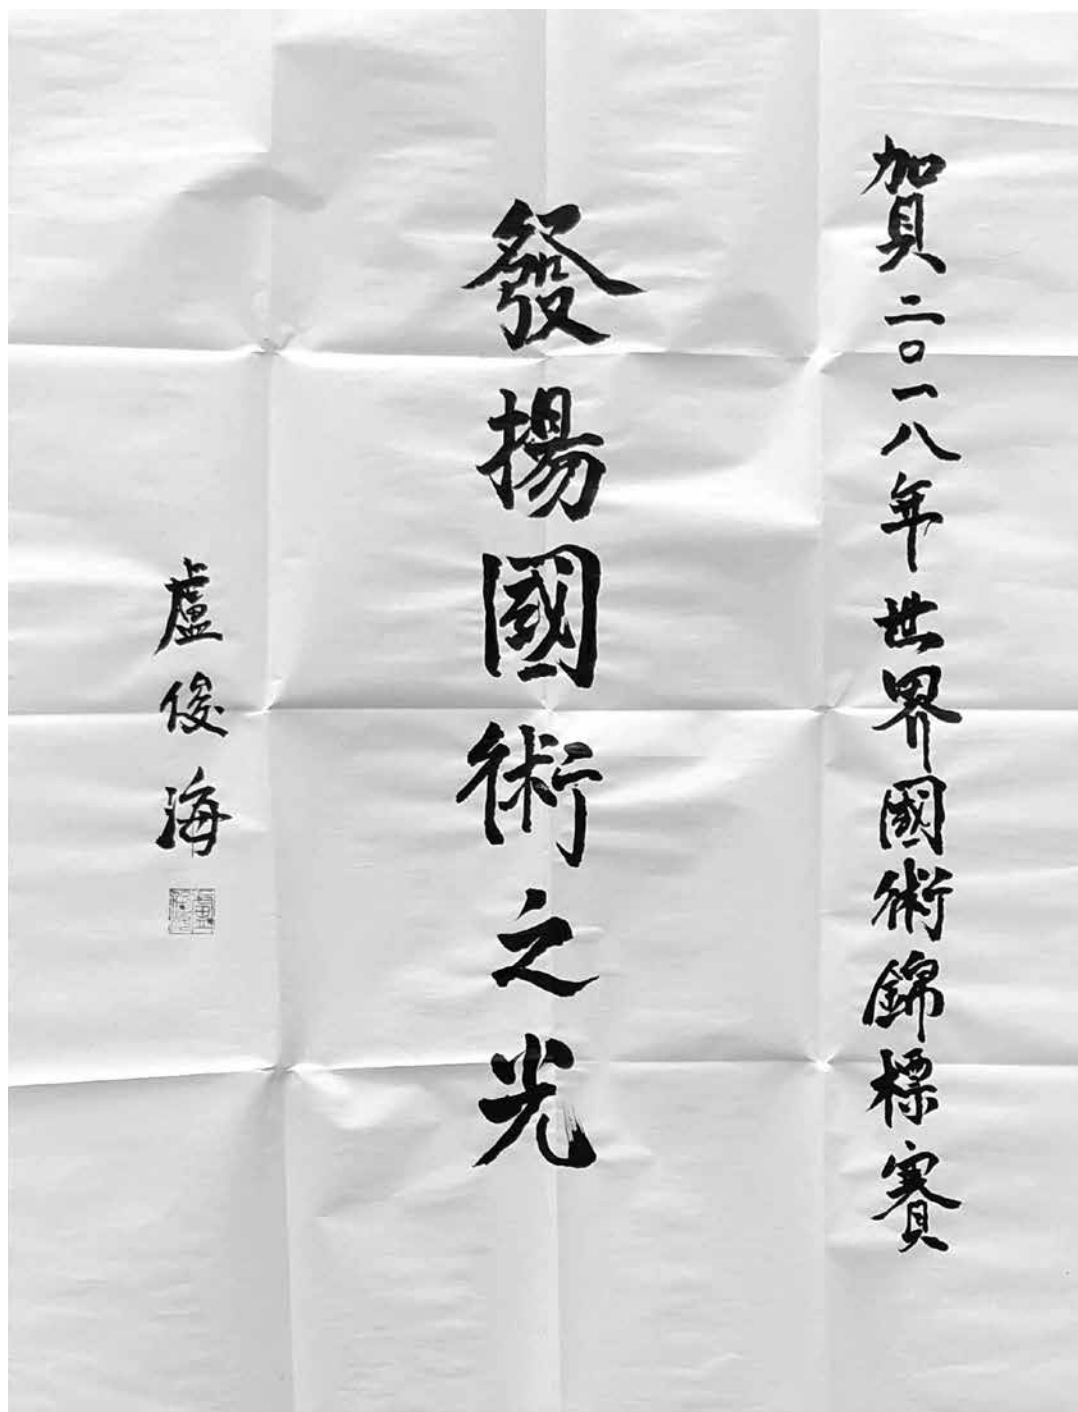 賀二〇一八年世界國術錦標賽
發揚國術之光
盧俊海